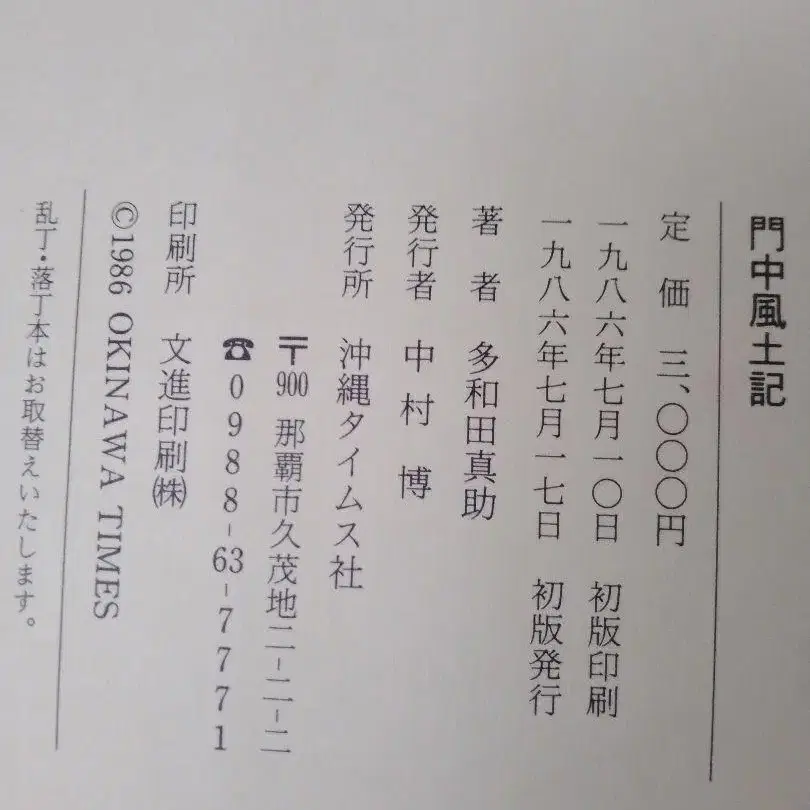 門中風土記
定価 三、〇〇〇円
一九八六年七月一〇日 初版印刷
一九八六年七月一七日 初版発行
著者 多和田真助
発行者 中村 博
発行所 沖縄タイムス社
〒900 那覇市久茂地二-二-二
☎0988-63-7771
印刷所 文進印刷㈱
©1986 OKINAWA TIMES
乱丁・落丁本はお取替えいたします。